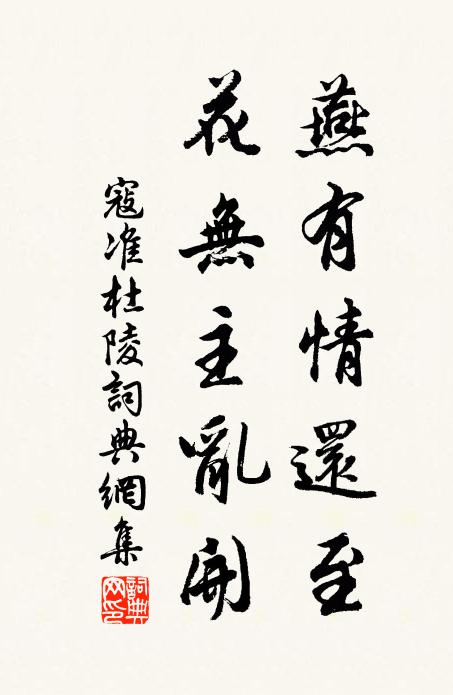 燕有情還至
花無主亂開
寇准杜陵詞典網集
詞典網印